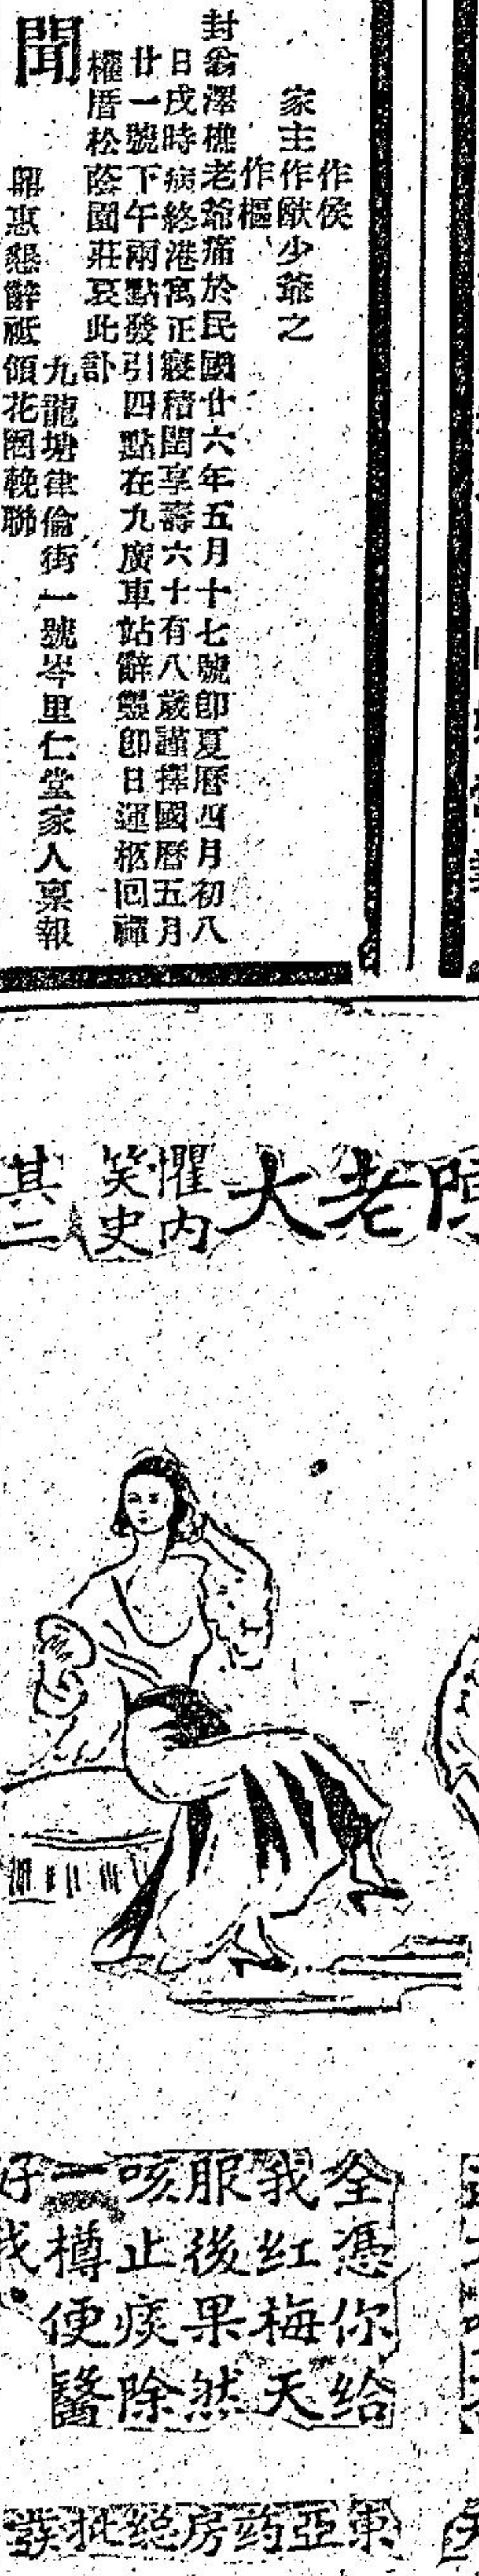 作侯
家主作猷少爺之
作樞
封翁澤樵老爺痛於民國廿六年五月十七號即夏曆四月初八
日戌時病終港寓正寢積閏享壽六十有八歲謹擇國曆五月
廿一號下午兩點發引四點在九廣車站辭靈即日運柩回禪
權厝松蔭園莊哀此訃
聞
九龍塘律倫街一號岑里仁堂家人稟報
鼎惠懇辭祗領花圈輓聯
陳老大
懼內
笑史
其二
全憑你給
我紅梅天
服後果然
咳止痰除
一樽便醫
好
東亞药房總批發